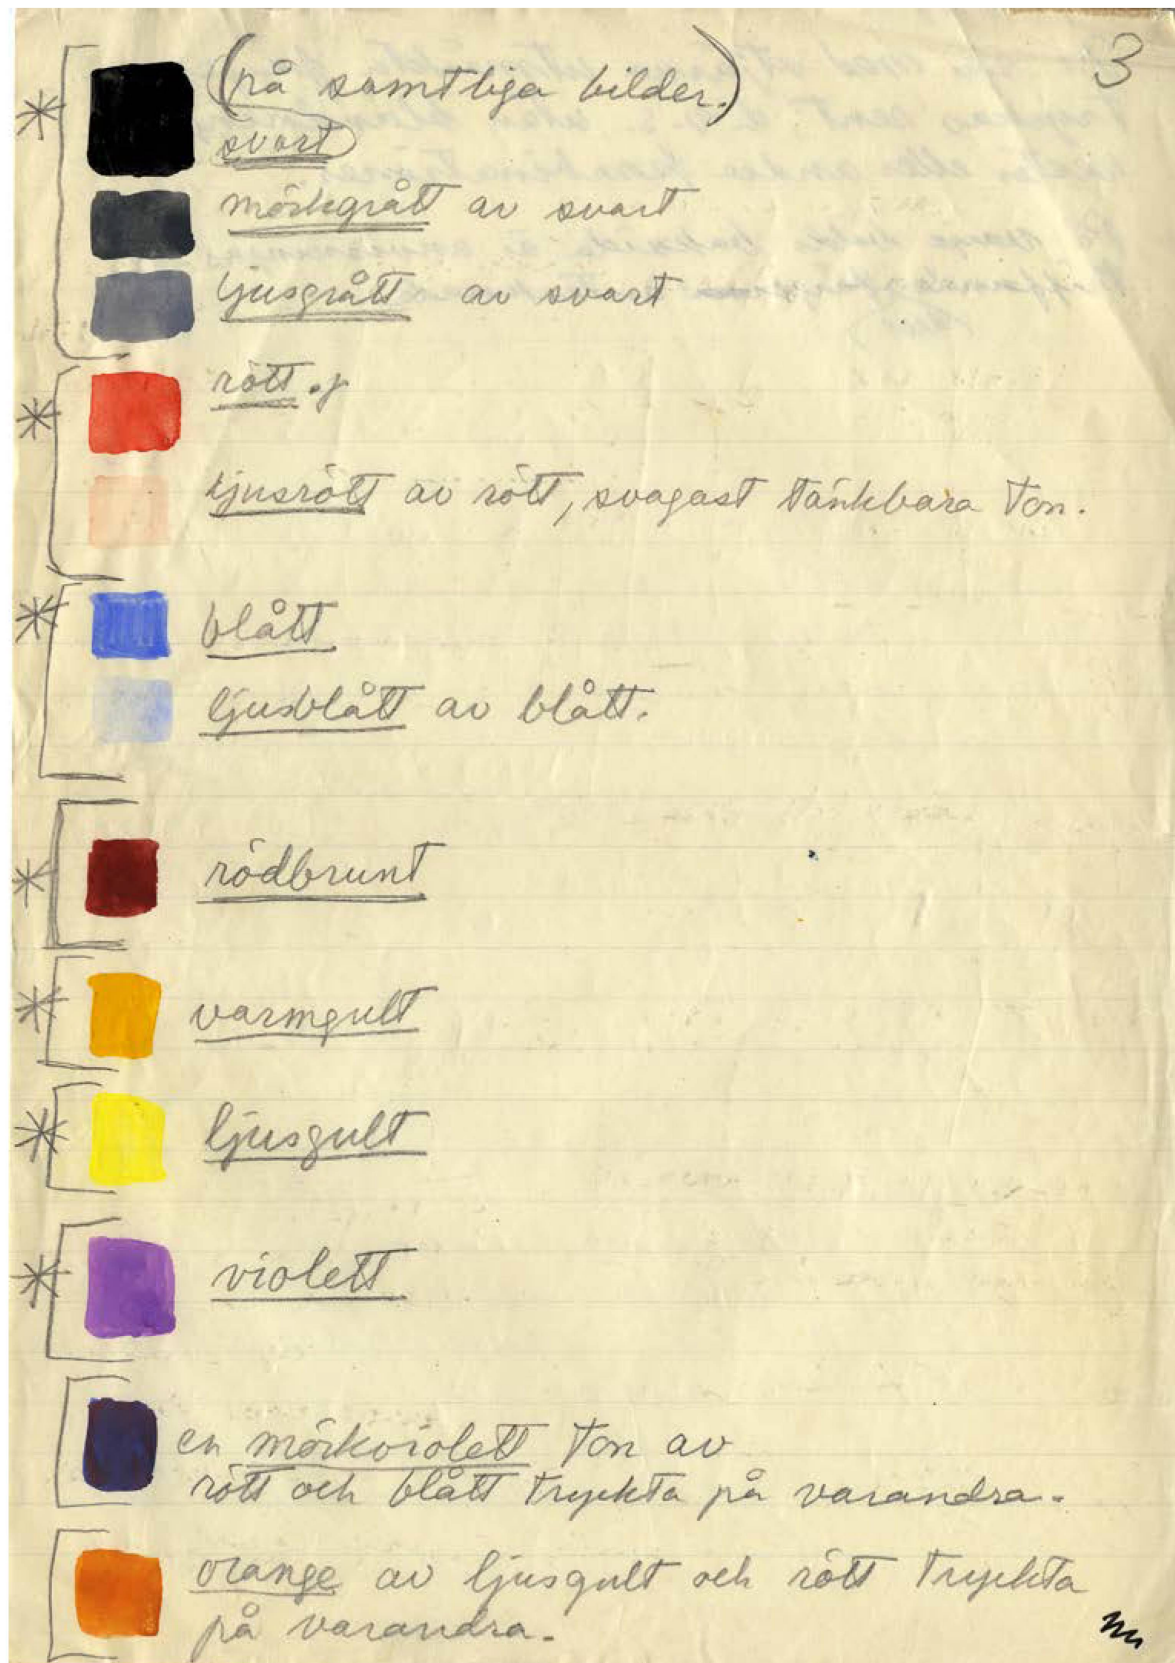 3
(på samtliga bilder.)
svart
mörkgrått av svart
ljusgrått av svart
rött.
ljusrött av rött, svagast tänkbara ton.
blått
ljusblått av blått.
rödbrunt
varmgult
ljusgult
violett
en mörkviolett ton av
rött och blått tryckta på varandra.
orange av ljusgult och rött tryckta
på varandra.